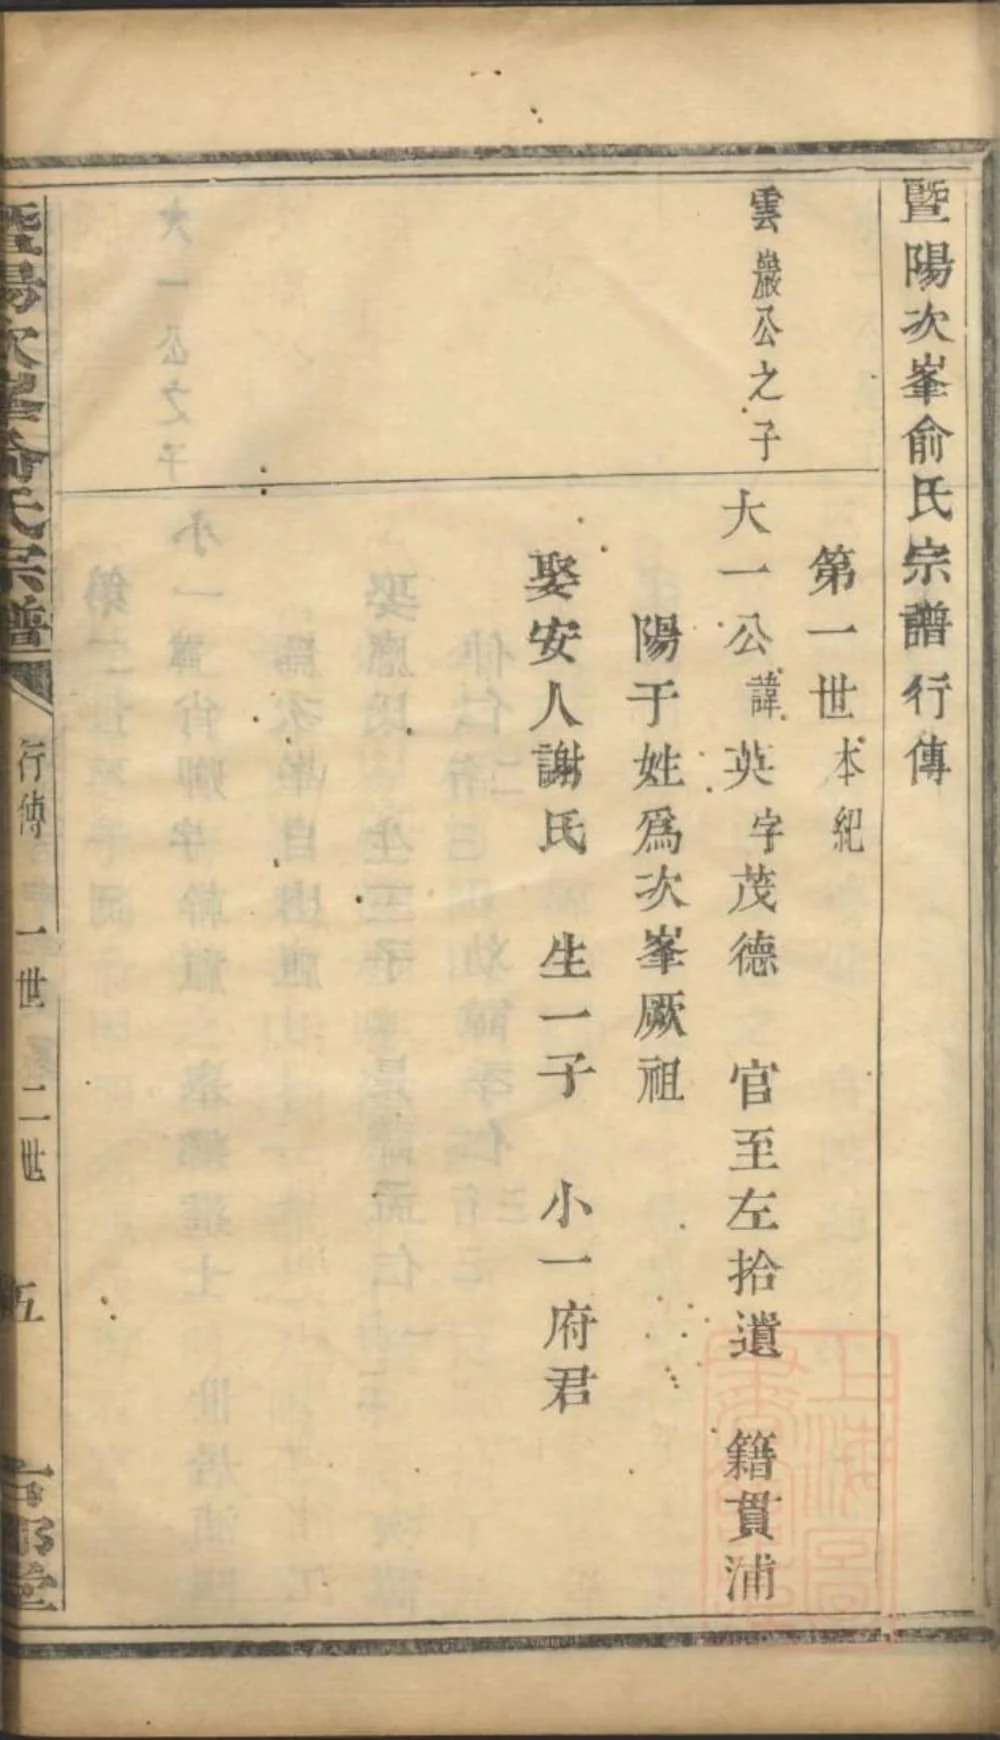 暨陽次峯俞氏宗譜行傳
第一世本紀
雲巖公之子
大一公諱英字茂德　官至左拾遺　籍貫浦
陽于姓爲次峯厥祖
娶安人謝氏　生一子　小一府君
暨陽次峯俞氏宗譜
行傳　一世　二世　五